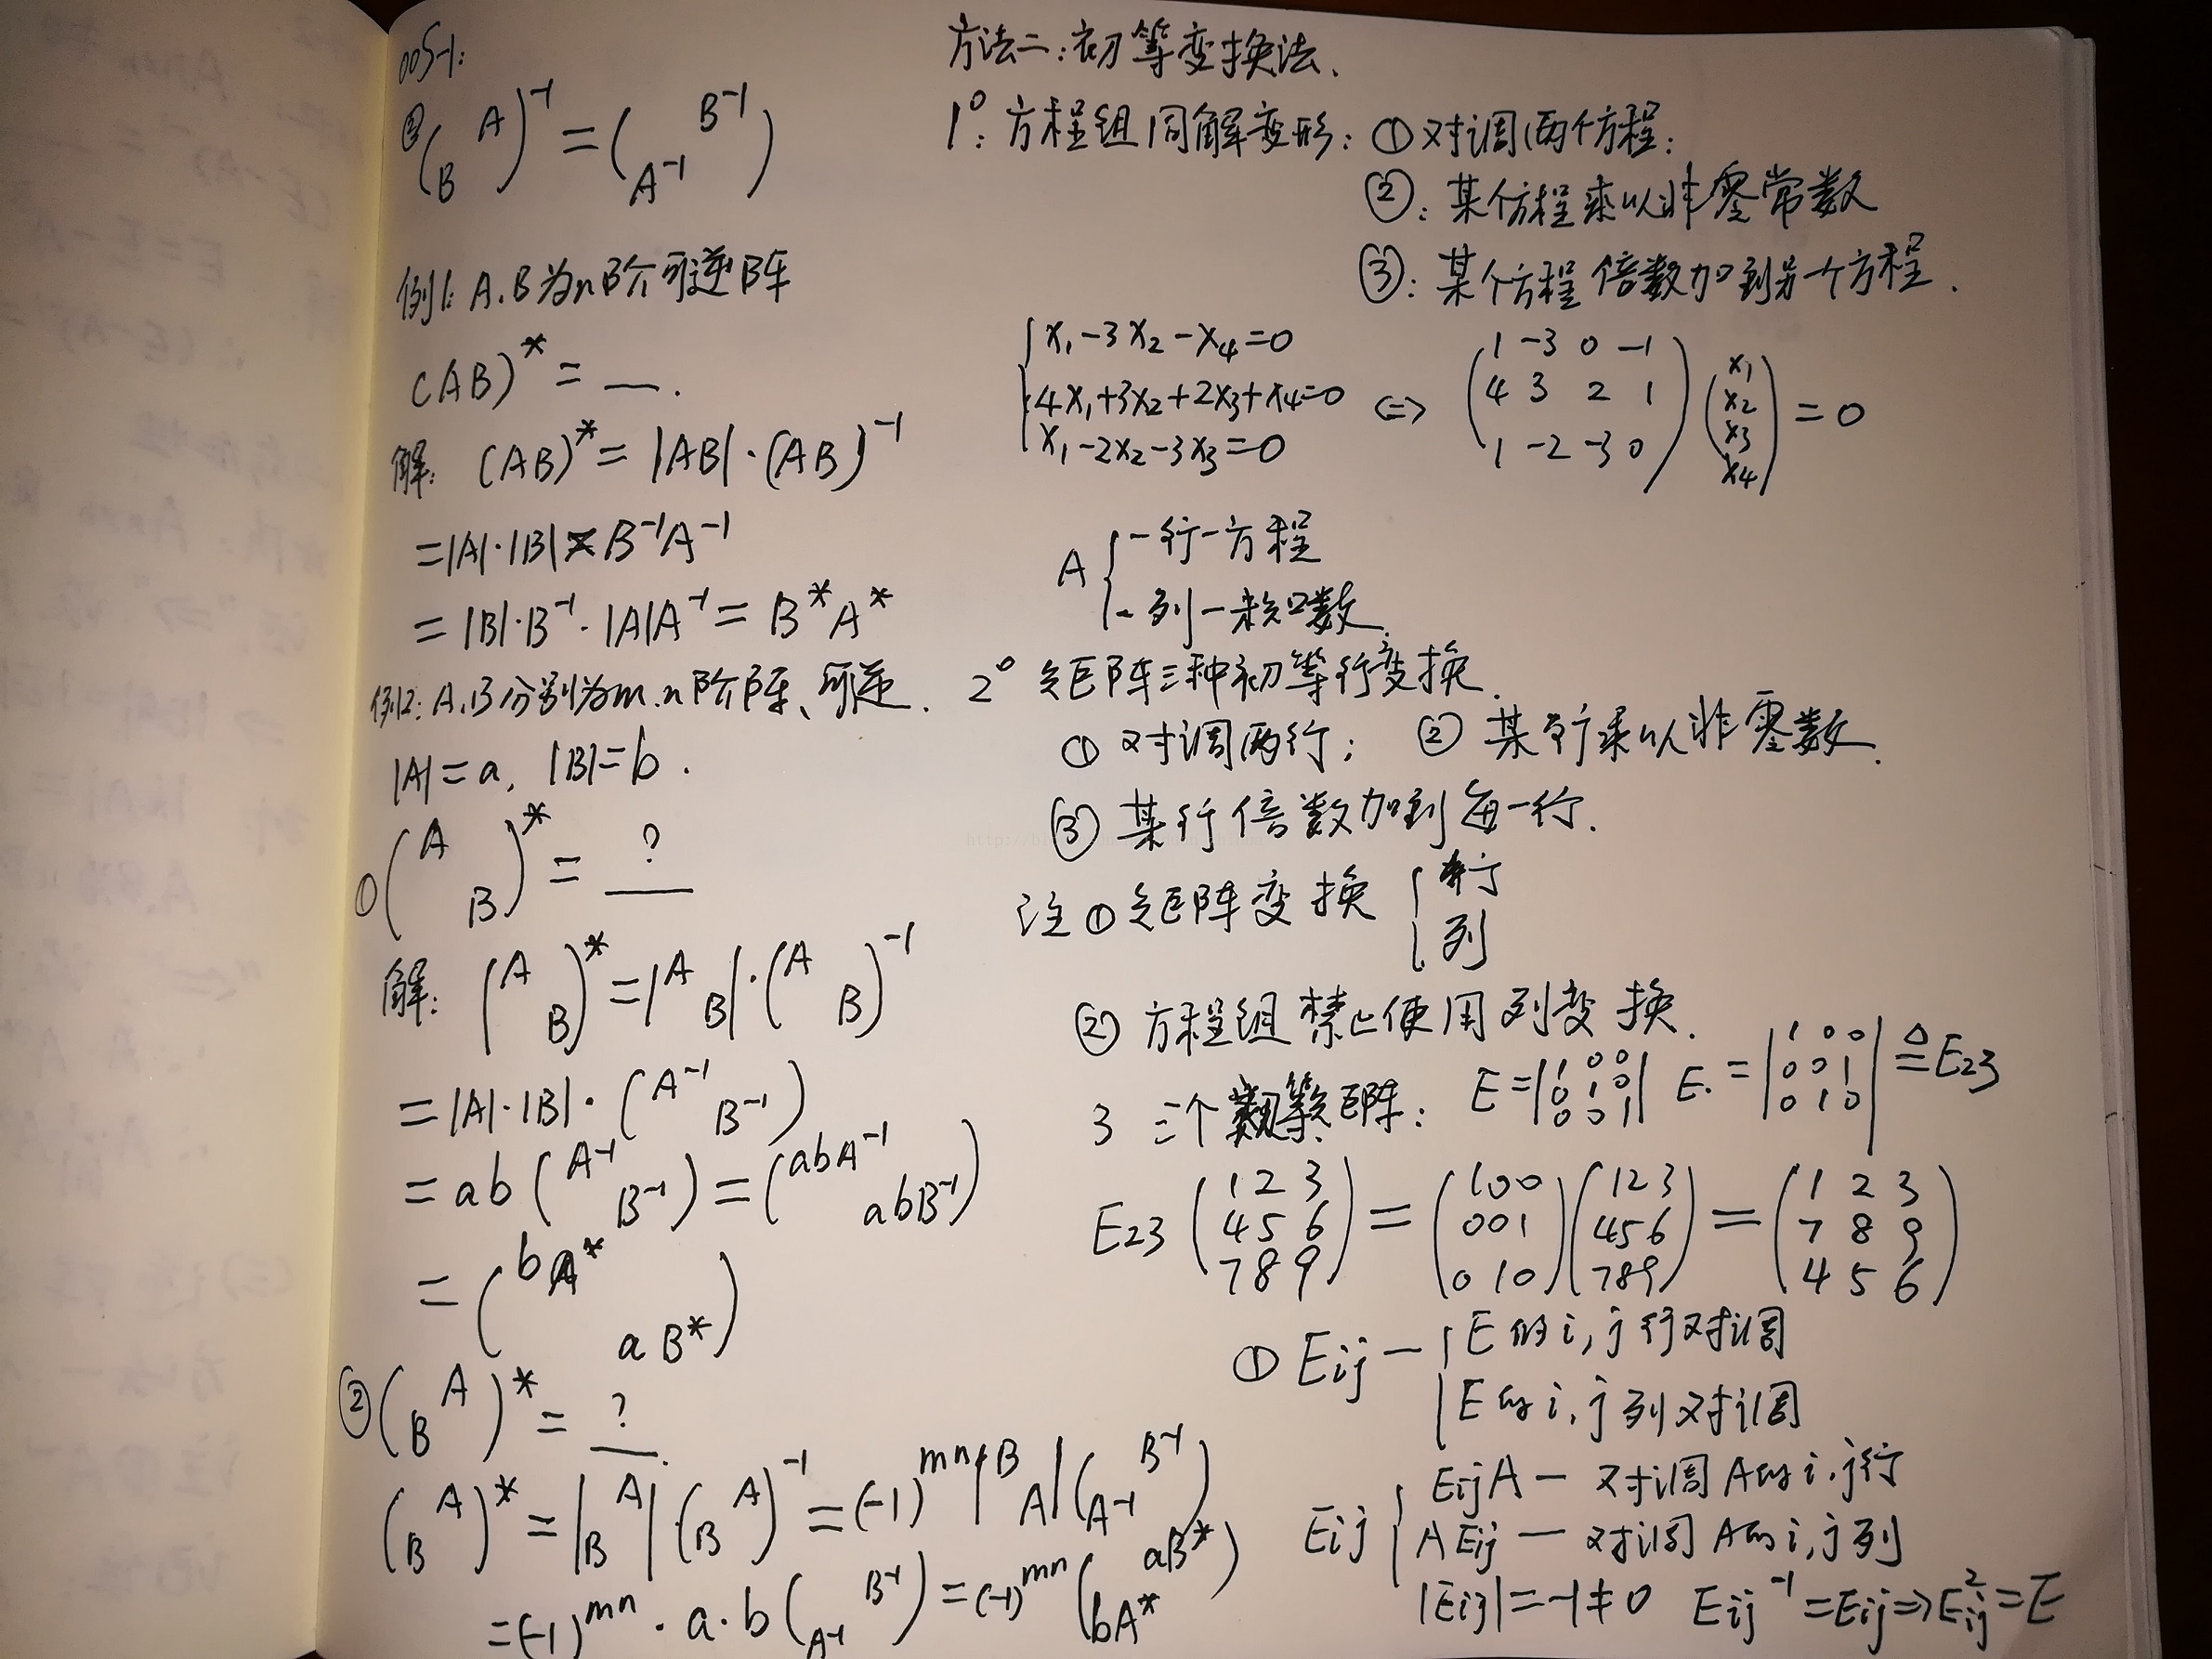 005-1:
② ( A
B )⁻¹ = ( B⁻¹
A⁻¹ )
例1: A.B为n阶可逆阵
(AB)* = __.
解: (AB)* = |AB|·(AB)⁻¹
=|A|·|B| × B⁻¹A⁻¹
= |B|·B⁻¹·|A|A⁻¹ = B*A*
例2: A.B分别为m.n阶阵、可逆.
|A|=a, |B|=b.
① (A
B)* = ?
解: (A
B)* = |A
B|·(A
B)⁻¹
= |A|·|B|·(A⁻¹
B⁻¹)
= ab (A⁻¹
B⁻¹) = (abA⁻¹
abB⁻¹)
= (bA*
aB*)
② ( A
B )* = ?
( A
B )* = | A
B | ( A
B )⁻¹ = (-1)^mn |B
A| ( B⁻¹
A⁻¹ )
=(-1)^mn · a·b ( B⁻¹
A⁻¹ ) = (-1)^mn ( aB*
bA* )
方法二:初等变换法.
1°: 方程组同解变形: ①对调两个方程:
②: 某个方程乘以非零常数
③: 某个方程倍数加到另一个方程.
{ x₁-3x₂-x₄=0
4x₁+3x₂+2x₃+x₄=0
x₁-2x₂-3x₃=0
<=> (1 -3 0 -1
4 3 2 1
1 -2 -3 0) (x₁
x₂
x₃
x₄) = 0
A { 一行一方程
一列一未知数.
2° 矩阵三种初等行变换.
① 对调两行; ② 某行乘以非零数.
③ 某行倍数加到每一行.
注 ① 矩阵变换 { 行
列
② 方程组禁止使用列变换.
3 三个初等矩阵: E = |1 0 0
0 1 0
0 0 1| E. = |1 0 0
0 0 1
0 1 0| ≜ E₂₃
E₂₃ (1 2 3
4 5 6
7 8 9) = (1 0 0
0 0 1
0 1 0) (1 2 3
4 5 6
7 8 9) = (1 2 3
7 8 9
4 5 6)
① Eij — { E的i,j行对调
E的i,j列对调
Eij { EijA — 对调A的i.j行
AEij — 对调A的i,j列
|Eij|=-1≠0 Eij⁻¹=Eij=>Eij²=E